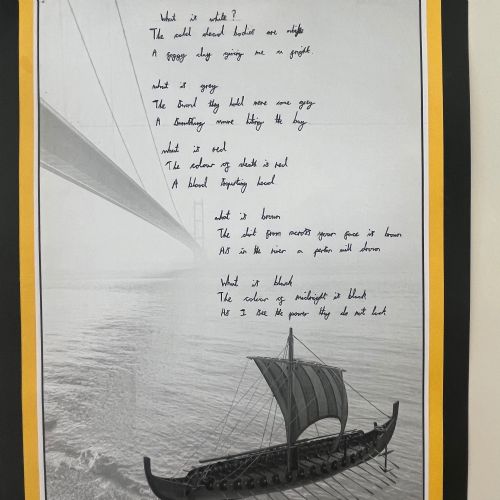 What is white?
The cold dead bodies are white
A foggy day giving me a fright.
what is grey
The Sword they hold were one grey
A Something more hiting the bay
what is red
The colour of death is red
A blood Squirting head
what is brown
The dirt from across your face is brown
AS in the river a person will drown
What is black
The colour of midnight is black
AS I see the power they do not lack